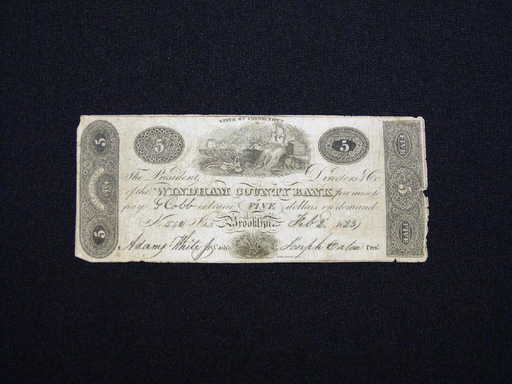 STATE OF CONNECTICUT
5 5
The President, Directors & Co.
of the WINDHAM COUNTY BANK promise to
pay G Cobb or bearer FIVE dollars on demand
Brooklyn Feb 2
Adams White Jr Joseph Eaton Prest
5
5
FIVE
5
FIVE